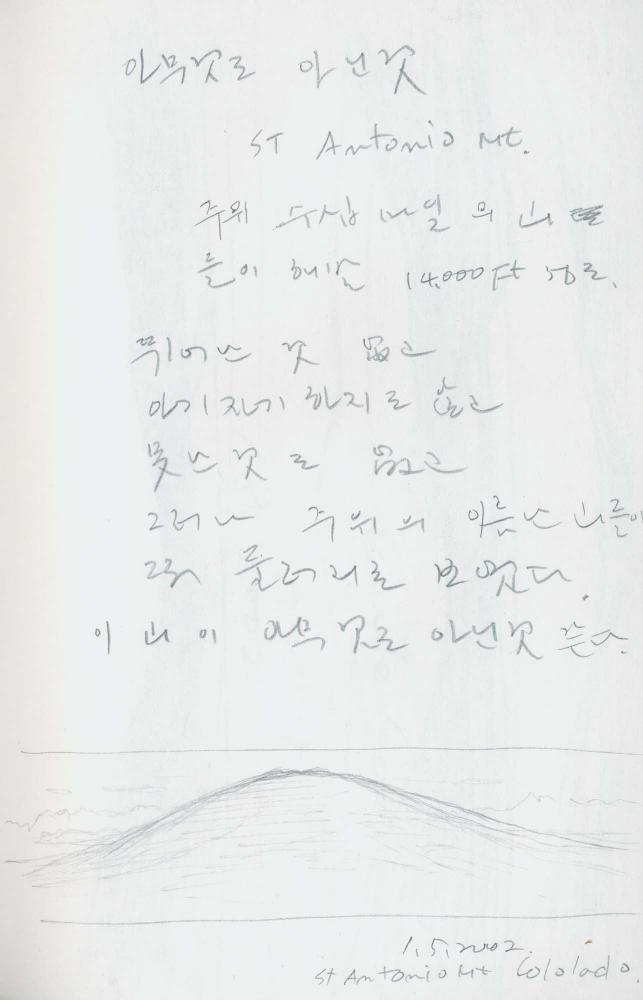 아무것도 아닌것
ST Antonio Mt.
주위 수십 마일 의 山
들이 해발 14.000 Ft 정도.
뛰어난 것 없고
아기자기 하지도 않고
못난것도 없고
그러나 주위의 이름난 山들이
들러리로 보였다.
이 山이 아무것도 아닌것 같다.
1.5.2002.
St Antonio Mt Cololado.